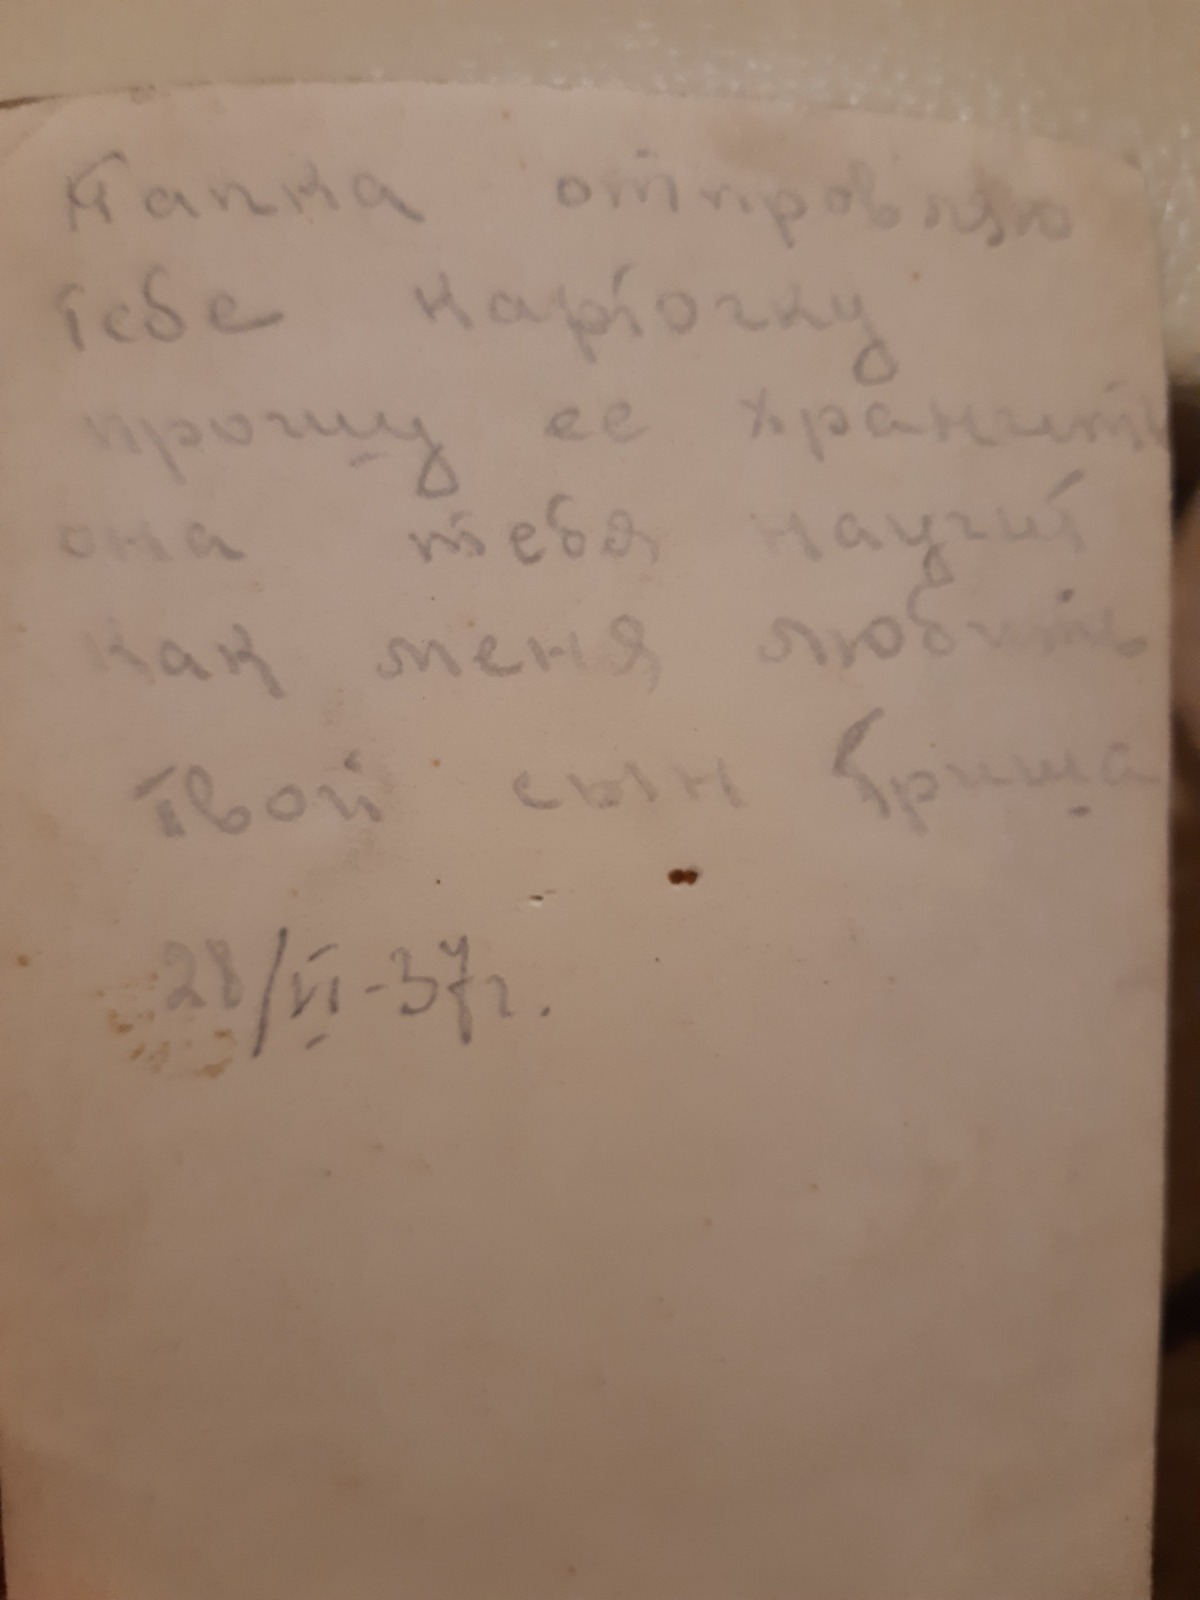 Папка отправляю
тебе карточку
прошу ее хранить
она тебя научит
как меня любить
Твой сын Гриша
28/VI-37г.